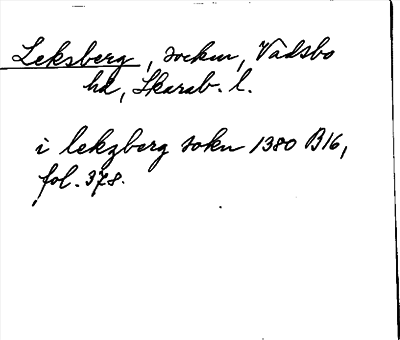 Leksberg, socken, Vadsbo
hd, Skarab. l.
i lekzberg sokn 1380 B16,
fol. 378.